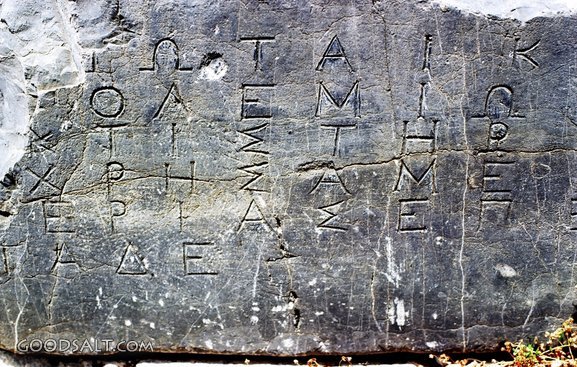 Ι Ω Τ Α Ι Κ
Ο Λ Ε Μ Ι Ω
Κ Τ Ι Σ Τ Η Ρ
Χ Ρ Η Σ Α Μ Ε
Ε Ρ Ι Α Σ Ε Π
Τ Α Δ Ε
GOODSALT.COM